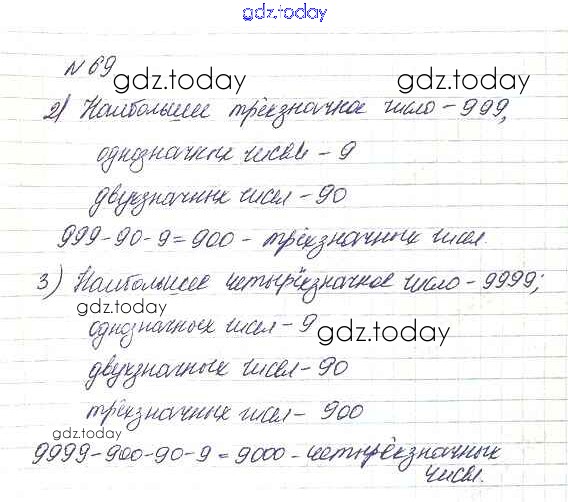 gdz.today
№ 69
gdz.today gdz.today
2) Наибольшее трёхзначное число - 999,
однозначных чисел - 9
двухзначных чисел - 90
999-90-9=900 - трёхзначных чисел.
3) Наибольшее четырёхзначное число - 9999;
gdz.today
однозначных чисел - 9
gdz.today
двухзначных чисел - 90
трёхзначных чисел - 900
gdz.today
9999-900-90-9=9000 - четырёхзначных
чисел.